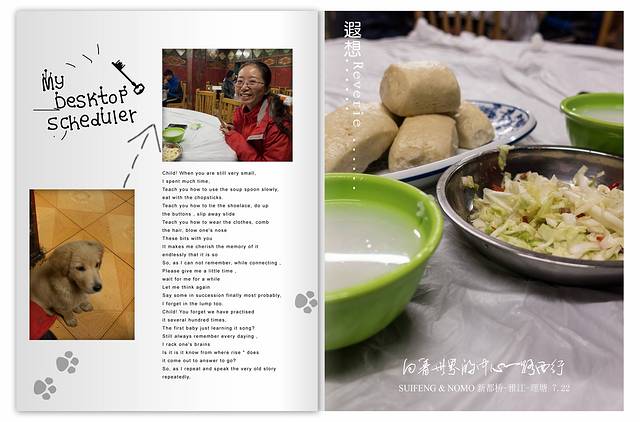 My
Desktop
Scheduler
Child! When you are still very small,
I spent much time,
Teach you how to use the soup spoon slowly,
eat with the chopsticks.
Teach you how to tie the shoelace, do up
the buttons , slip away slide
Teach you how to wear the clothes, comb
the hair, blow one's nose
These bits with you
It makes me cherish the memory of it
endlessly that it is so
So, as I can not remember, while connecting ,
Please give me a little time ,
wait for me for a while
Let me think again
Say some in succession finally most probably,
I forget in the lump too.
Child! You forget we have practised
it several hundred times,
The first baby just learning it song?
Still always remember every daying ,
I rack one's brains
Is it is it know from where rise " does
it come out to answer to go?
So, as I repeat and speak the very old story
repeatedly,
遐想
Reverie
向着世界的中心一路西行
SUIFENG & NOMO 新都桥-雅江-理塘 7.22